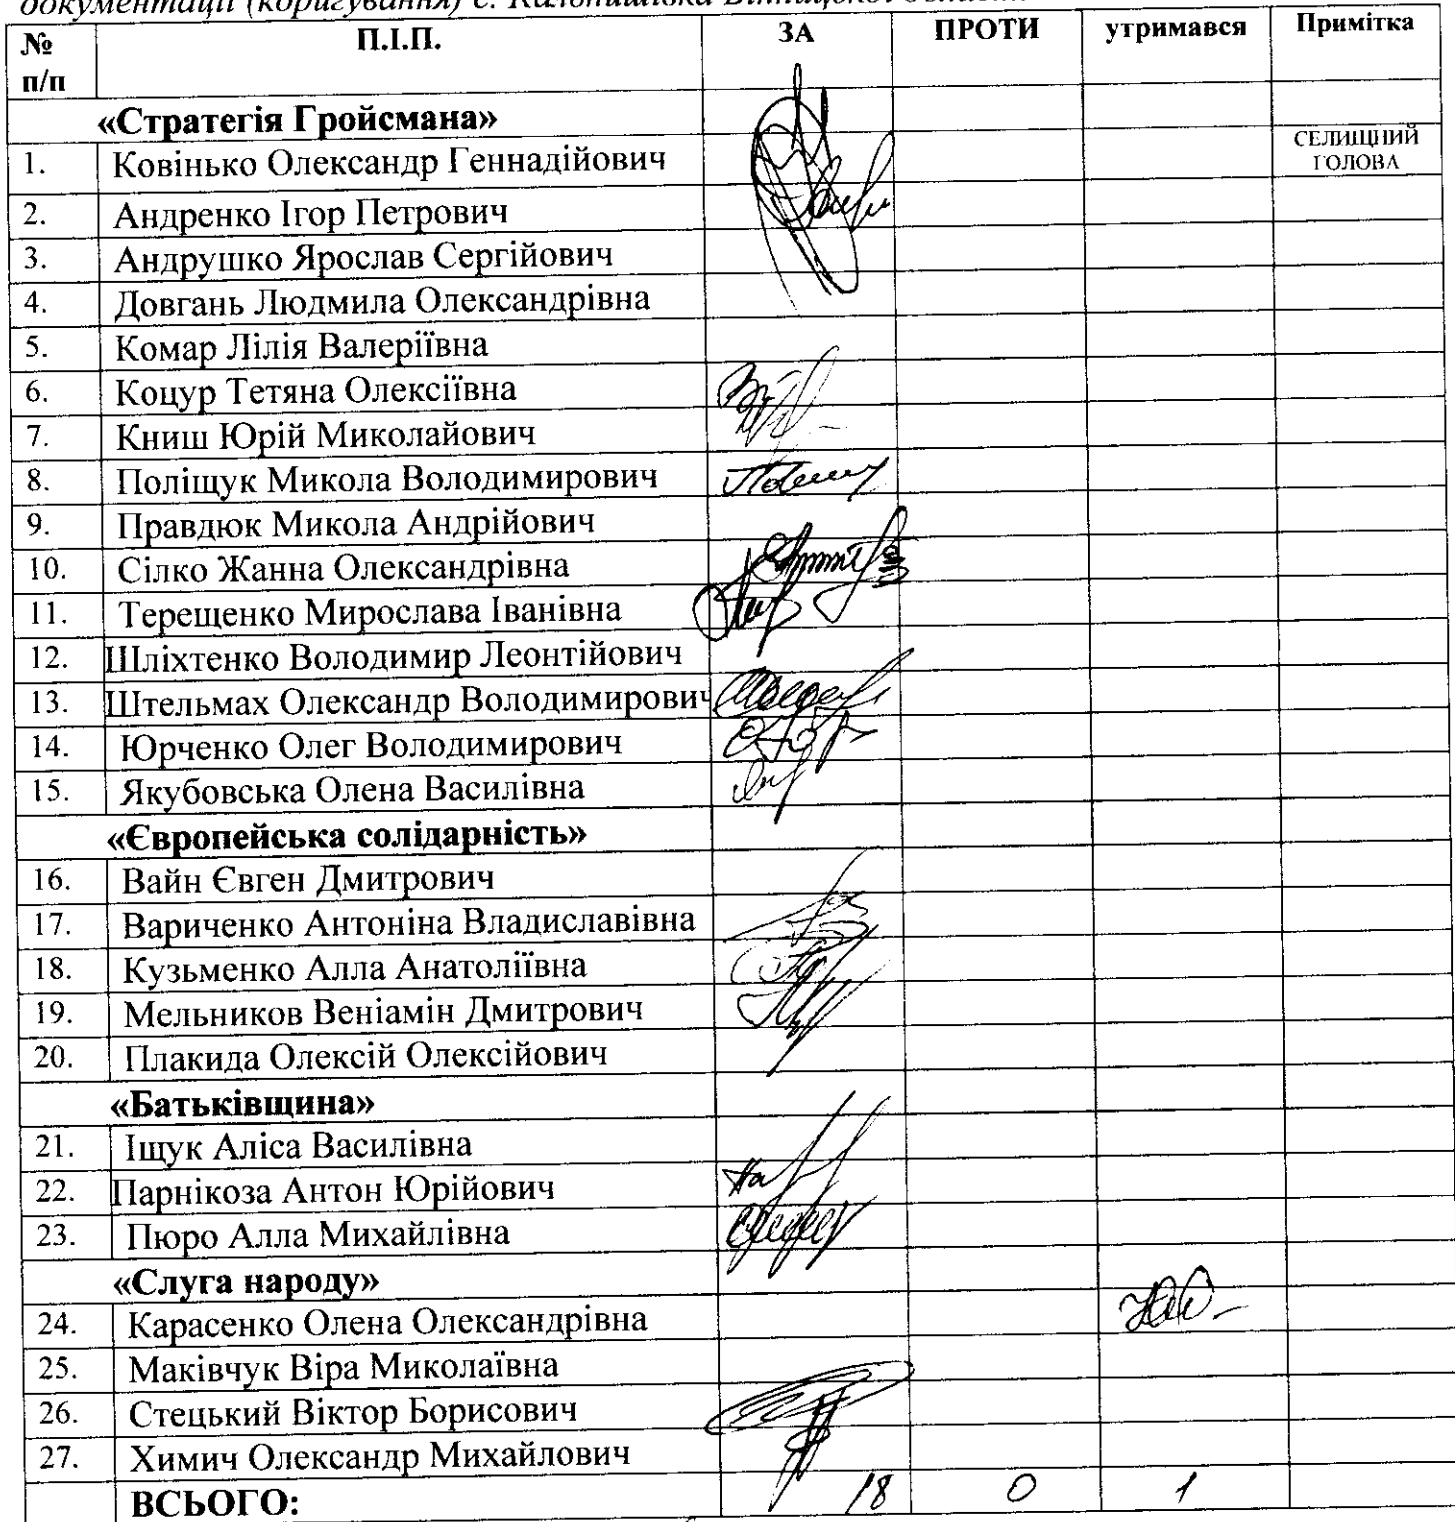 документації (коригування) с.
№ п/п П.І.П. ЗА ПРОТИ утримався Примітка
«Стратегія Гройсмана»
1. Ковінько Олександр Геннадійович СЕЛИЩНИЙ ГОЛОВА
2. Андренко Ігор Петрович
3. Андрушко Ярослав Сергійович
4. Довгань Людмила Олександрівна
5. Комар Лілія Валеріївна
6. Коцур Тетяна Олексіївна
7. Книш Юрій Миколайович
8. Поліщук Микола Володимирович
9. Правдюк Микола Андрійович
10. Сілко Жанна Олександрівна
11. Терещенко Мирослава Іванівна
12. Шліхтенко Володимир Леонтійович
13. Штельмах Олександр Володимирович
14. Юрченко Олег Володимирович
15. Якубовська Олена Василівна
«Європейська солідарність»
16. Вайн Євген Дмитрович
17. Вариченко Антоніна Владиславівна
18. Кузьменко Алла Анатоліївна
19. Мельников Веніамін Дмитрович
20. Плакида Олексій Олексійович
«Батьківщина»
21. Іщук Аліса Василівна
22. Парнікоза Антон Юрійович
23. Пюро Алла Михайлівна
«Слуга народу»
24. Карасенко Олена Олександрівна
25. Маківчук Віра Миколаївна
26. Стецький Віктор Борисович
27. Химич Олександр Михайлович
ВСЬОГО: 18 0 1